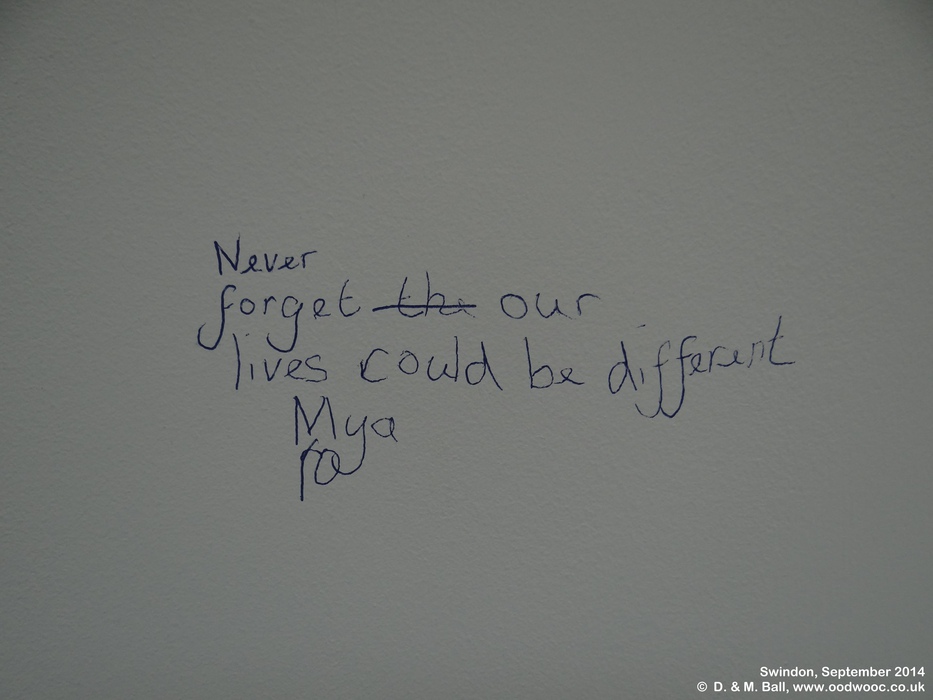 Never
forget the our
lives could be different
Mya
Swindon, September 2014
© D. & M. Ball, www.oodwooc.co.uk